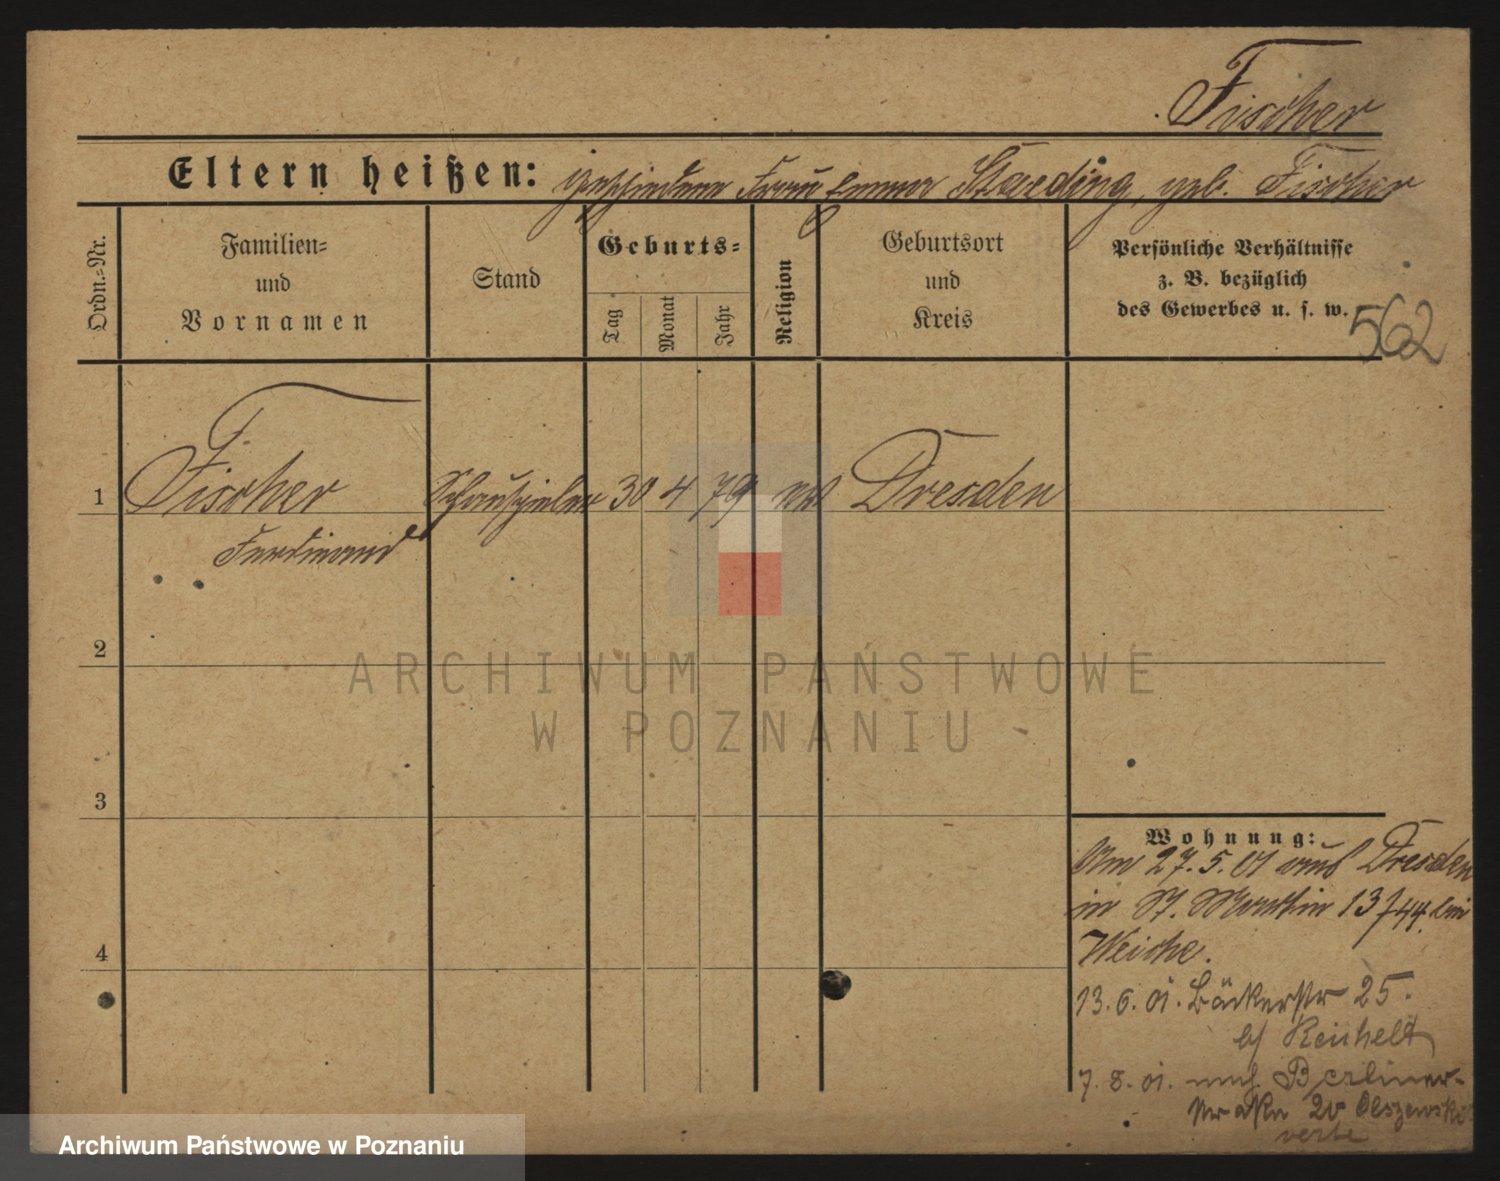 Fischer
Eltern heißen: geschiedene Frau Emma Staeding, geb. Fischer
Ordn.-Nr.
Familien-
und
Vornamen
Stand
Geburts-
Tag
Monat
Jahr
Religion
Geburtsort
und
Kreis
Persönliche Verhältnisse
z. B. bezüglich
des Gewerbes u. s. w.
562
1 Fischer Schauspieler 30 4 79 Dresden
Ferdinand
2
3
4
Wohnung:
Am 27.5.01 aus Dresden
in St. Martin 13 bei
Weiche.
13.6.01. Bäckerstr 25.
b/ Reichelt
7.8.01. nach Berliner-
straße 20 Olszewski
ARCHIWUM PAŃSTWOWE
W POZNANIU
Archiwum Państwowe w Poznaniu